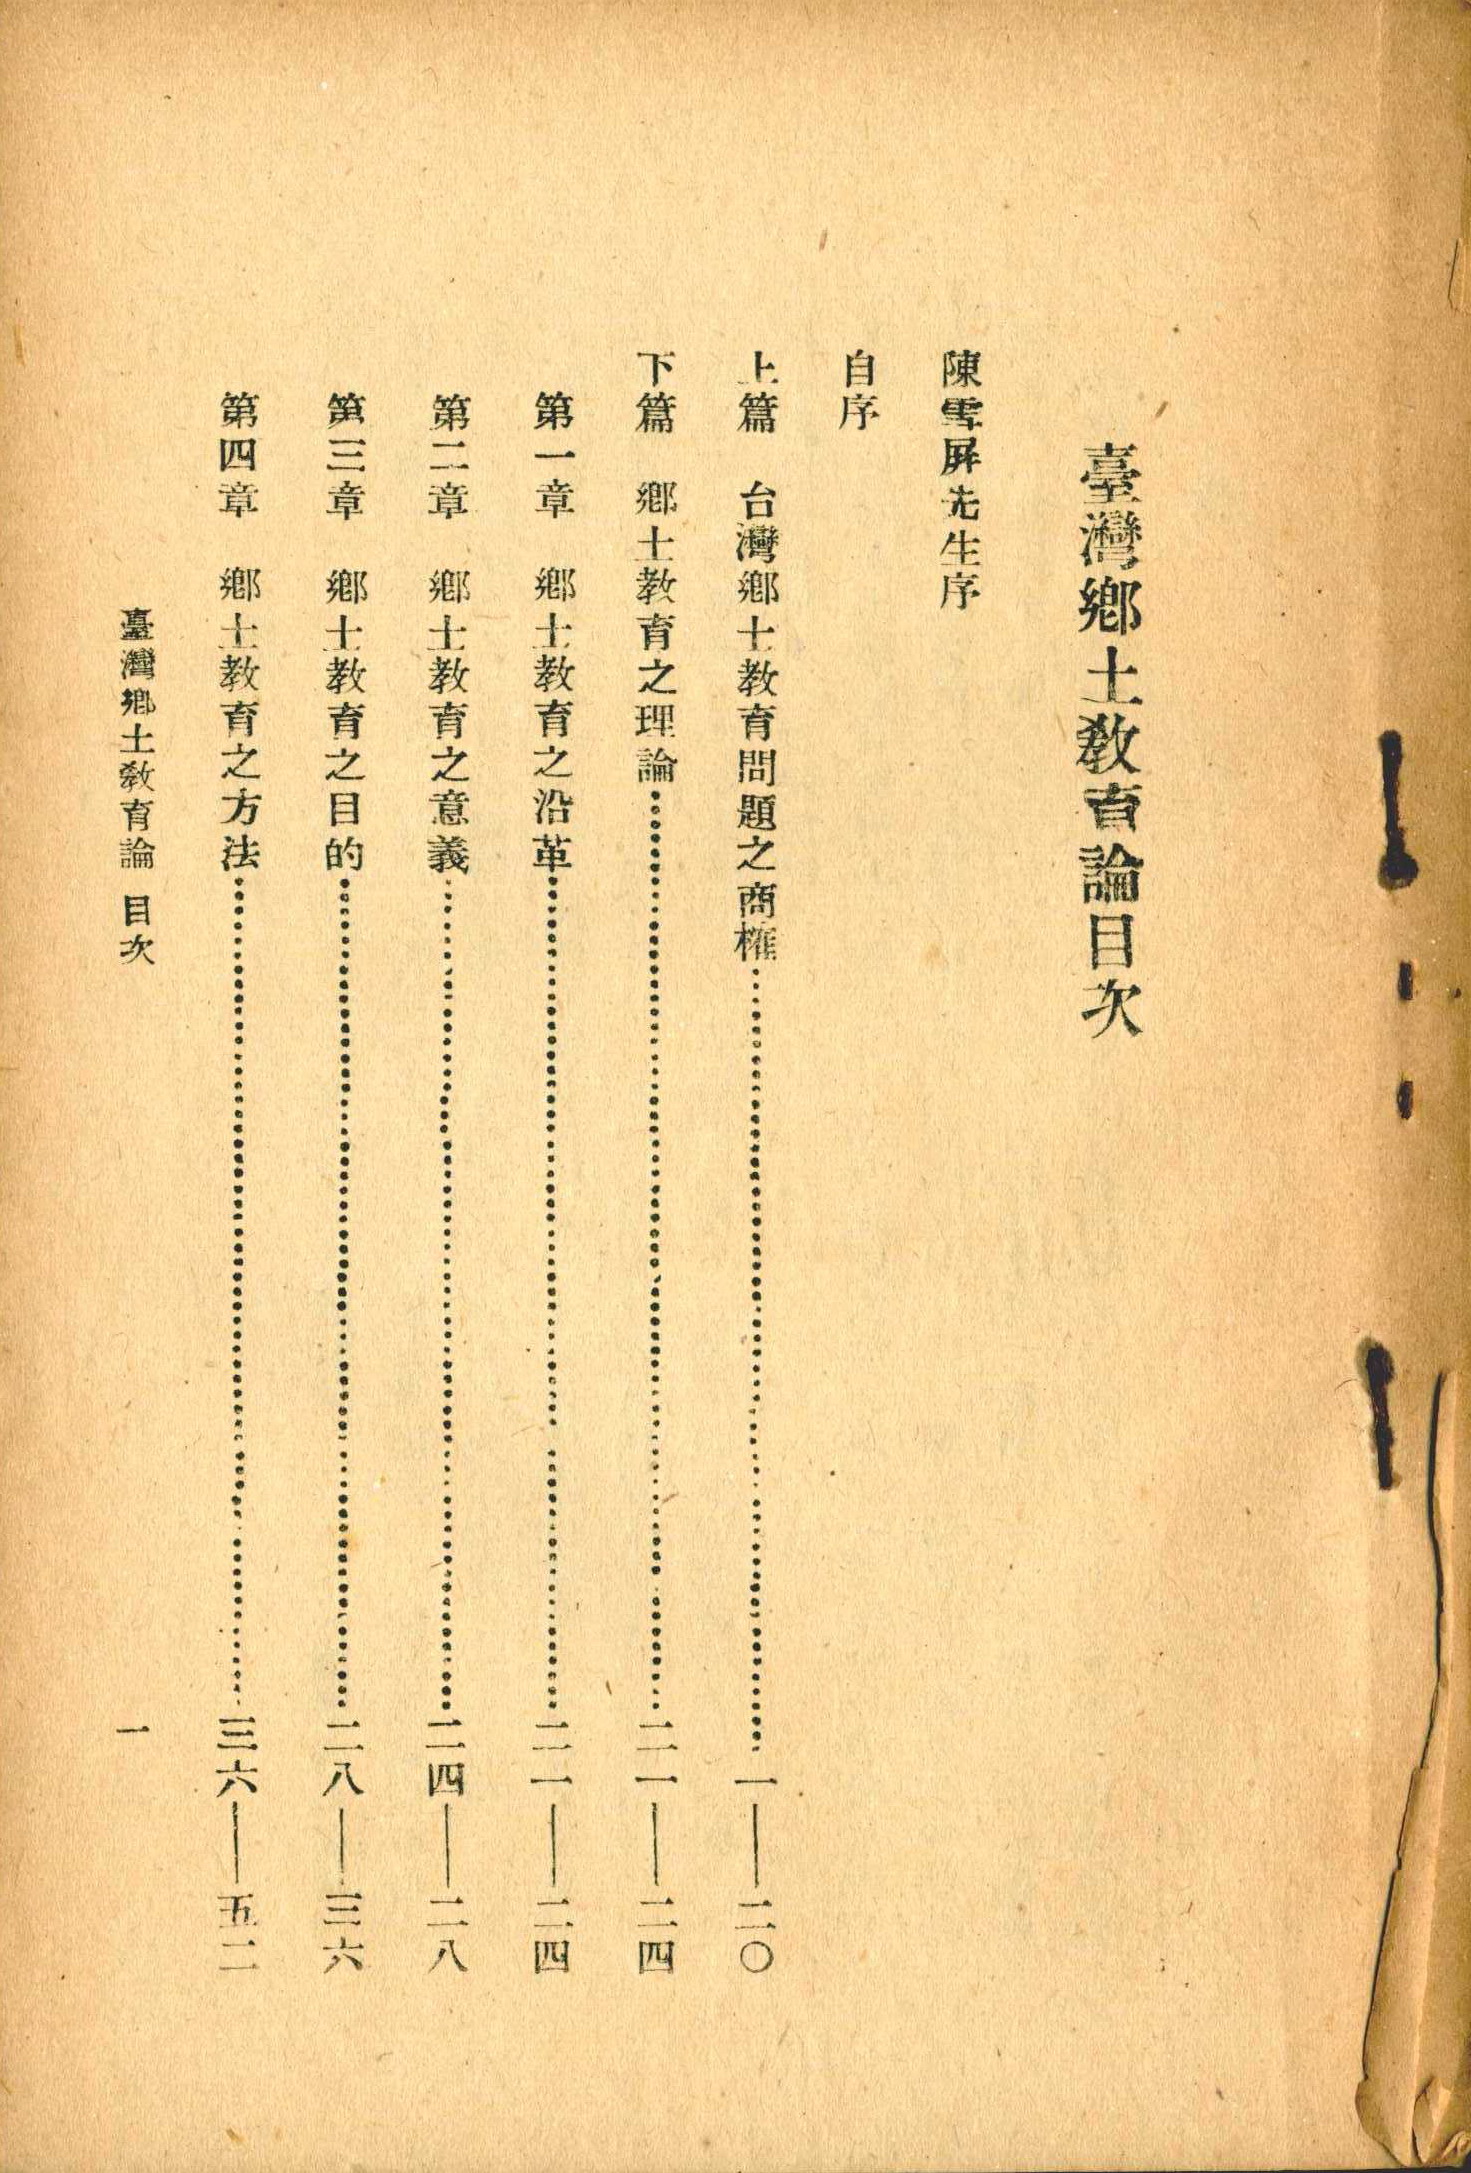 臺灣鄉土教育論目次
陳雪屏先生序
自序
上篇　台灣鄉土教育問題之商榷……………一——二〇
下篇　鄉土教育之理論……………二一——二四
第一章　鄉土教育之沿革……………二一——二四
第二章　鄉土教育之意義……………二四——二八
第三章　鄉土教育之目的……………二八——三六
第四章　鄉土教育之方法……………三六——五二
臺灣鄉土教育論　目次
一